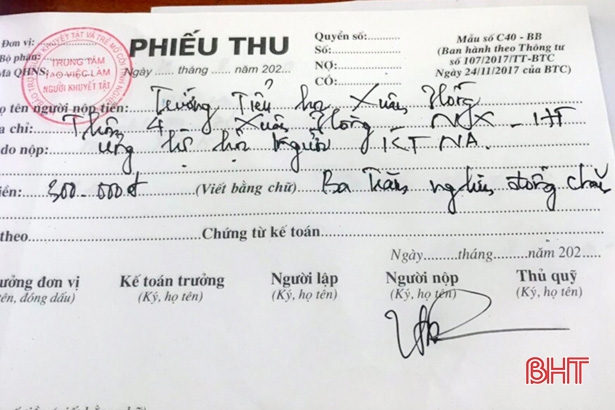 Đơn vị:
Bộ phận:
Mã QHNS:
TRUNG TÂM
VIỆC LÀM
NGƯỜI KHUYẾT TẬT
PHIẾU THU
Ngày ..... tháng ...... năm 202....
Quyển số:
Số:
NỢ:
CÓ:
Mẫu số C40 - BB
(Ban hành theo Thông tư
số 107/2017/TT-BTC
Ngày 24/11/2017 của BTC)
ọ tên người nộp tiền: Trường Tiểu học Xuân Hồng
a chỉ: Thôn 4 Xuân Hồng - NX - HT
do nộp: ủng hộ hội Người KT NA.
iền: 300.000đ (Viết bằng chữ) Ba Trăm nghìn đồng chẵn
theo Chứng từ kế toán.
Ngày.......tháng.......năm 202.....
ưởng đơn vị Kế toán trưởng Người lập Người nộp Thủ quỹ
ên, đóng dấu) (Ký, họ tên) (Ký, họ tên) (Ký, họ tên) (Ký, họ tên)
BHT